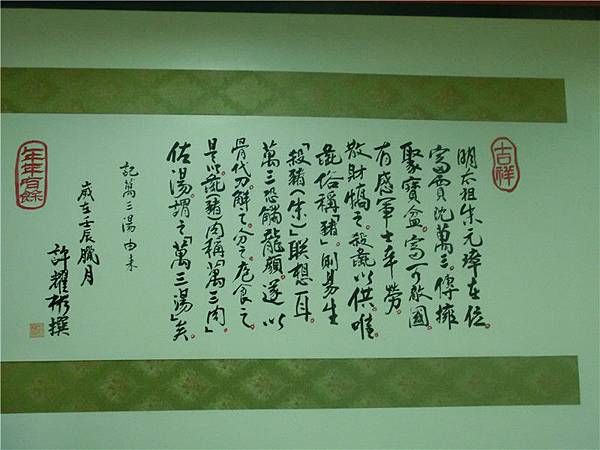 吉祥
明太祖朱元璋在位。
富賈沈萬三。傳擁
聚寶盆。富可敵國。
有感軍士辛勞。
散財犒之。殺彘以供。唯
彘俗稱「豬」則易生
「殺豬（朱）」聯想耳。
萬三恐觸龍顏。遂以
骨代刀解之。分庖食之。
是以彘（豬）肉稱「萬三肉」
佐湯謂之「萬三湯」矣。
記萬三湯由来
歲壬辰臘月
許耀彬撰
年年有餘